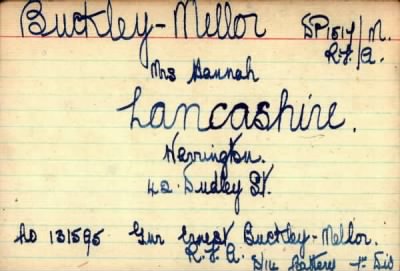 Buckley-Mellor SP1517/M.
R.F.A.
Mrs Hannah
Lancashire.
Werrington.
42. Dudley St.
No 131595 Gnr Ernest Buckley-Mellor.
R.F.A. Battery 1st Div